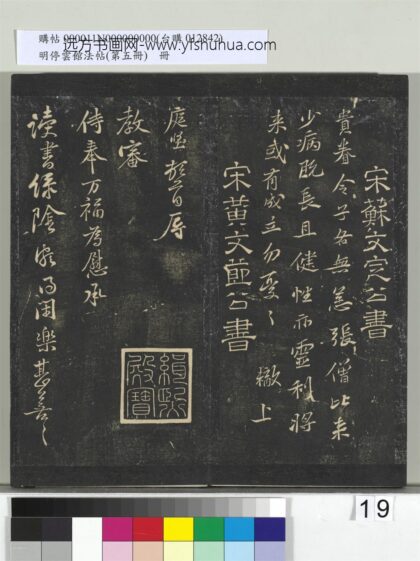 購帖 000011N000000000(台購 012842)
远方书画网-www.yfshuhua.com
明停雲館法帖(第五冊) 冊
宋蘇文定公書
貴眷令子各無恙張僧比來
少病既長且健性亦靈利將
來或有成立勿憂〻 轍上
宋黃文節公書
庭堅頓首辱
教審
侍奉万福為慰承
讀書條陰 閑樂甚善〻
緝熙
殿寶
19